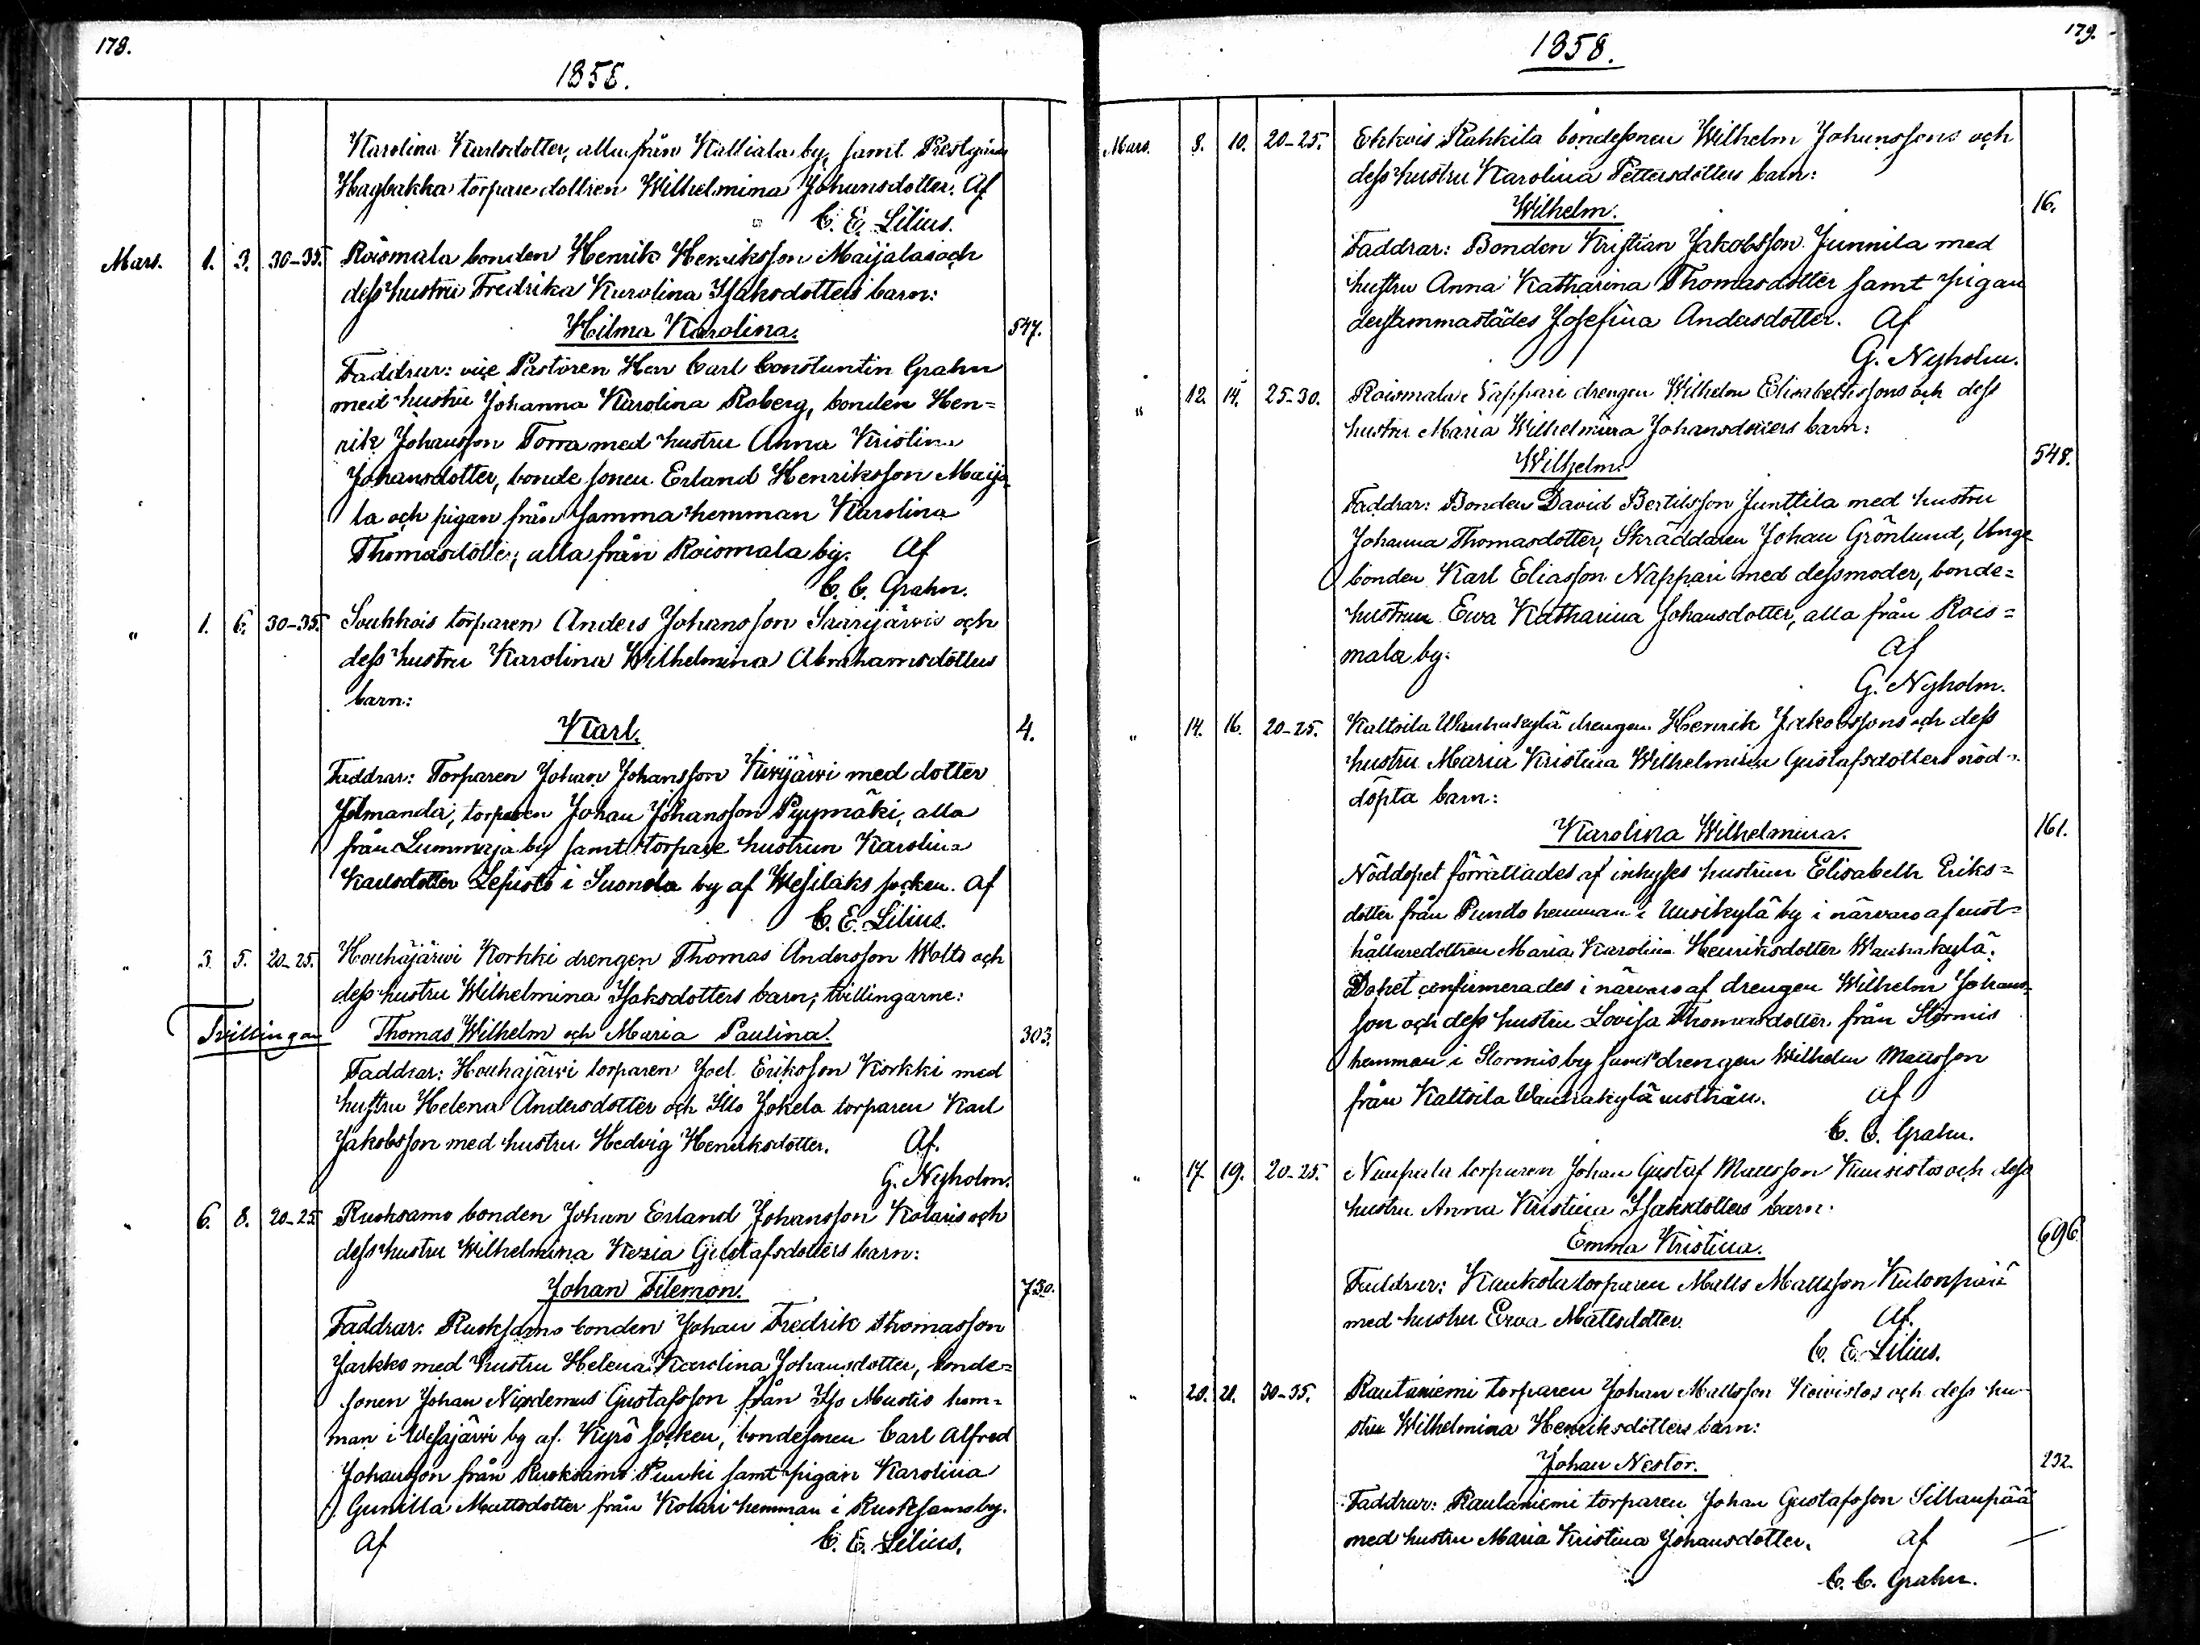 178.
1858.
Karolina Karlsdotter, alla från Kalliala by, samt Prestgårds
Hagbakka torparedottren Wilhelmina Johansdotter. Af
C. E. Lilius.
Mars. 1. 3. 30-35. Roismala bonden Henrik Henriksson Maijalas och
dess hustru Fredrika Karolina Isaksdotters barn:
Hilma Karolina. 547.
Faddrar: vice Pastoren Herr Carl Constantin Grahn
med hustru Johanna Karolina Roberg, bonden Hen=
rik Johansson Torra med hustru Anna Kristina
Johansdotter, bonde sonen Erland Henriksson Maija
la och pigan från samma hemman Karolina
Thomasdotter, alla från Roismala by. Af
C. C. Grahn.
" 1. 6. 30-35. Soukkois torparen Anders Johansson Saarijärvis och
dess hustru Karolina Wilhelmina Abrahamsdotters
barn:
Karl. 4.
Faddrar: Torparen Johan Johansson Kivijärvi med dotter
Amanda, torparen Johan Johansson Pyymäki, alla
från Lummaja by samt torpare hustrun Karolina
Karlsdotter Lepistö i Suonola by af Wesilaks socken. Af
C. E. Lilius.
" 3. 5. 20-25. Houhajärvi Korkki drengen Thomas Andersson Wolts och
dess hustru Wilhelmina Isaksdotters barn, tvillingarne:
Tvillingar Thomas Wilhelm och Maria Paulina. 303.
Faddrar: Houhajärvi torparen Joel Eriksson Korkki med
hustru Helena Andersdotter och Illo Jokela torparen Karl
Jakobsson med hustru Hedvig Henriksdotter. Af.
G. Nyholm.
" 6. 8. 20-25. Ruoksamo bonden Johan Erland Johansson Kolaris och
dess hustru Wilhelmina Kezia Gustafsdotters barn:
Johan Filemon. 730.
Faddrar: Ruoksamo bonden Johan Fredrik Thomasson
Jarkko med hustru Helena Karolina Johansdotter, bonde=
sonen Johan Nicodemus Gustafsson från Iso Mustio hem=
man i Wesajärvi by af Kyrö socken, bondesonen Carl Alfred
Johansson från Ruoksamo samt pigan Karolina
Gunilla Mattsdotter från Kolari hemman i Ruoksamo by.
Af C. E. Lilius.
179.
1858.
Mars. 8. 10. 20-25. Ekkois Rahkila bondesonen Wilhelm Johanssons och
dess hustru Karolina Pettersdotters barn:
Wilhelm. 16.
Faddrar: Bonden Kristian Jakobsson Junnila med
hustru Anna Katharina Thomasdotter samt pigan
derstammastädes Josefina Andersdotter. Af
G. Nyholm.
" 12. 14. 25-30. Roismala Näppäri drengen Wilhelm Elisabethssons och dess
hustru Maria Wilhelmina Johansdotters barn:
Wilhelm. 548.
Faddrar: Bonden David Bertilsson Junttila med hustru
Johanna Thomasdotter, Skräddaren Johan Grönlund, Unge
bonden Karl Eliasson Näppari med dess moder, bonde=
hustrun Ewa Katharina Johansdotter, alla från Rois=
mala by. Af
G. Nyholm.
" 14. 16. 20-25. Kaltsila Wanhakylä drengen Henrik Jakobssons och dess
hustru Maria Kristina Wilhelmina Gustafsdotters nöd=
döpta barn:
Karolina Wilhelmina. 161.
Nöddopet förrättades af inhyses hustrun Elisabeth Eriks=
dotter från Pundo hemman i Uusikylä by i närvaro af rust=
hållaredottren Maria Karolina Henriksdotter Wanhakylä.
Dopet confirmerades i närvaro af drengen Wilhelm Johans=
son och dess hustru Lovisa Thomasdotter från Stormis
hemman i Stormis by samt drengen Wilhelm Mattsson
från Kaltsila Wanhakylä rusthåll. Af
C. C. Grahn.
" 17. 19. 20-25. Nuupala torparen Johan Gustaf Mattsson Kuusistos och dess
hustru Anna Kristina Isaksdotters barn.
Emma Kristina. 696.
Faddrar: Kaukola torparen Matts Mattsson Kulonpää
med hustru Ewa Mattsdotter. Af.
C. E. Lilius.
" 20. 21. 30-35. Rautaniemi torparen Johan Mattsson Koivistos och dess hu=
stru Wilhelmina Henriksdotters barn:
Johan Nestor. 232.
Faddrar: Rautaniemi torparen Johan Gustafsson Sillanpää
med hustru Maria Kristina Johansdotter. Af
C. C. Grahn.